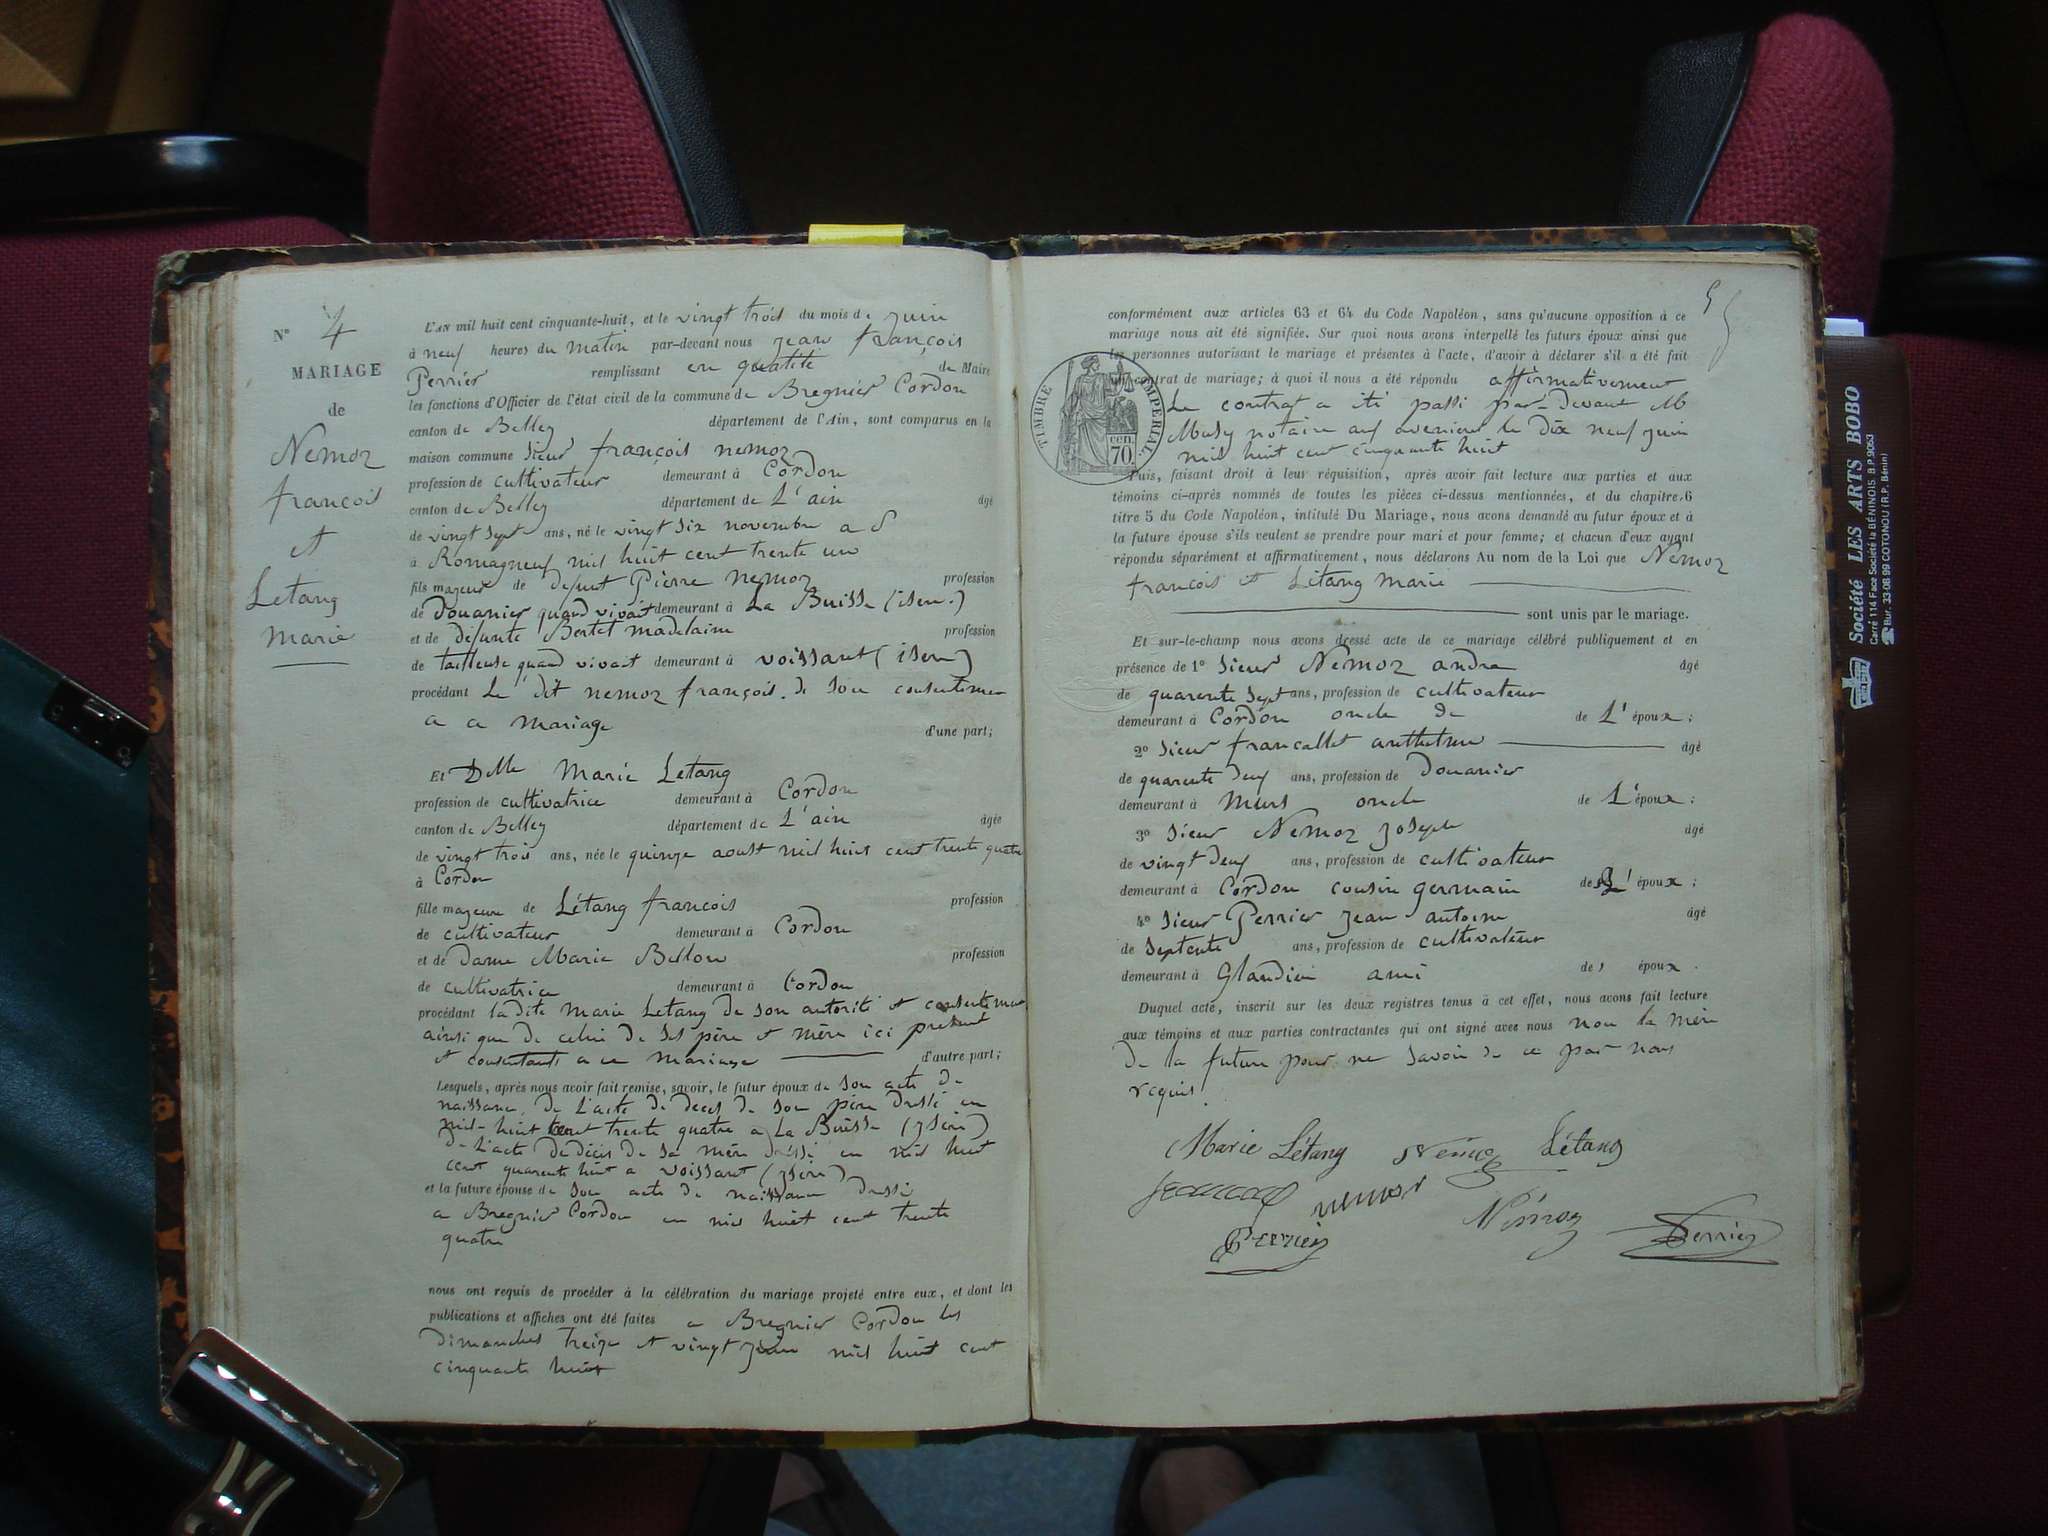 N° 4
MARIAGE
de
Nemoz
françois
et
Letang
marie
L'AN mil huit cent cinquante-huit, et le vingt trois du mois de juin
à neuf heures du matin par-devant nous jean françois
Perrier remplissant en qualité de Maire
les fonctions d'Officier de l'état civil de la commune de Bregnier Cordon
canton de Belley département de l'Ain, sont comparus en la
maison commune Sieur françois nemoz
profession de cultivateur demeurant à Cordon
canton de Belley département de L'ain âgé
de vingt sept ans, né le vingt six novembre a
à Romagneux mil huit cent trente un
fils majeur de defunt Pierre nemoz profession
de Douanier quand vivait demeurant à La Buisse (isere.)
et de défunte Bertet madelaine profession
de tailleuse quand vivait demeurant à voissant (isere)
procédant Le dit nemoz françois. de son consentemen
a ce mariage
d'une part;
Et Delle Marie Letang
profession de cultivatrice demeurant à Cordon
canton de Belley département de L'ain âgée
de vingt trois ans, née le quinze aoust mil huit cent trente quatre
à Cordon
fille majeure de Létang francois profession
de cultivateur demeurant à Cordon
et de Dame Marie Bellon profession
de cultivatrice demeurant à Cordon
procédant la dite Marie Letang de son autorité et consentement
ainsi que de celui de ses père et mère ici présent
et consentants a ce mariage
d'autre part;
Lesquels, après nous avoir fait remise, savoir, le futur époux de son acte de
naissance, de L'acte de deces de son père dressé en
mil-huit cent trente quatre a La Buisse (ysère)
de L'acte de décés de sa mère dressé en mil huit
cent quarente huit a voissant (ysère)
et la future épouse de son acte de naissance dressé
a Bregnier Cordon en mil huit cent trente
quatre
nous ont requis de procéder à la célébration du mariage projeté entre eux, et dont les
publications et affiches ont été faites a Bregnier Cordon les
Dimanches treize et vingt juin mil huit cent
cinquante huit
5
conformément aux articles 63 et 64 du Code Napoléon, sans qu'aucune opposition à ce
mariage nous ait été signifiée. Sur quoi nous avons interpellé les futurs époux ainsi que
les personnes autorisant le mariage et présentes à l'acte, d'avoir à déclarer s'il a été fait
un contrat de mariage; à quoi il nous a été répondu affirmativement
Le contrat a été passé par-devant M
notaire aux avenieres le dix neuf juin
mil huit cent cinquante huit
TIMBRE IMPERIAL
cen.
70
Puis, faisant droit à leur réquisition, après avoir fait lecture aux parties et aux
témoins ci-après nommés de toutes les pièces ci-dessus mentionnées, et du chapitre 6
titre 5 du Code Napoléon, intitulé Du Mariage, nous avons demandé au futur époux et à
la future épouse s'ils veulent se prendre pour mari et pour femme; et chacun d'eux ayant
répondu séparément et affirmativement, nous déclarons Au nom de la Loi que Nemoz
francois et Létang marie
sont unis par le mariage.
Et sur-le-champ nous avons dressé acte de ce mariage célébré publiquement et en
présence de 1° Sieur Nemoz andré âgé
de quarente sept ans, profession de cultivateur
demeurant à Cordon oncle de de L'époux;
2° Sieur francallet âgé
de quarente deux ans, profession de Douanier
demeurant à murs oncle de L'époux;
3° Sieur Nemoz joseph âgé
de vingt deux ans, profession de cultivateur
demeurant à Cordon cousin germain de L'époux;
4° Sieur Perrier jean antoine âgé
de Septente ans, profession de cultivateur
demeurant à Glandieu ami de époux.
Duquel acte, inscrit sur les deux registres tenus à cet effet, nous avons fait lecture
aux témoins et aux parties contractantes qui ont signé avec nous non la mère
de la future pour ne savoir de ce par nous
requis.
Marie Létang Némoz Létang
nemoz
Perrier Némoz Perrier
Société LES ARTS BOBO
Carré 114 Face Société la BÉNINOIS. B.P. 9053
Bur. 33-08.99 COTONOU (R.P. Bénin)